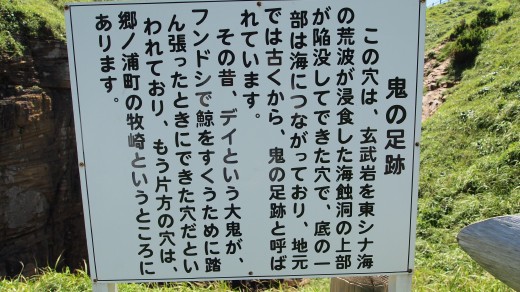 鬼の足跡
この穴は、玄武岩を東シナ海
の荒波が浸食した海蝕洞の上部
が陥没してできた穴で、底の一
部は海につながっており、地元
では古くから、鬼の足跡と呼ば
れています。
その昔、デイという大鬼が、
フンドシで鯨をすくうために踏
ん張ったときにできた穴だとい
われており、もう片方の穴は、
郷ノ浦町の牧崎というところに
あります。